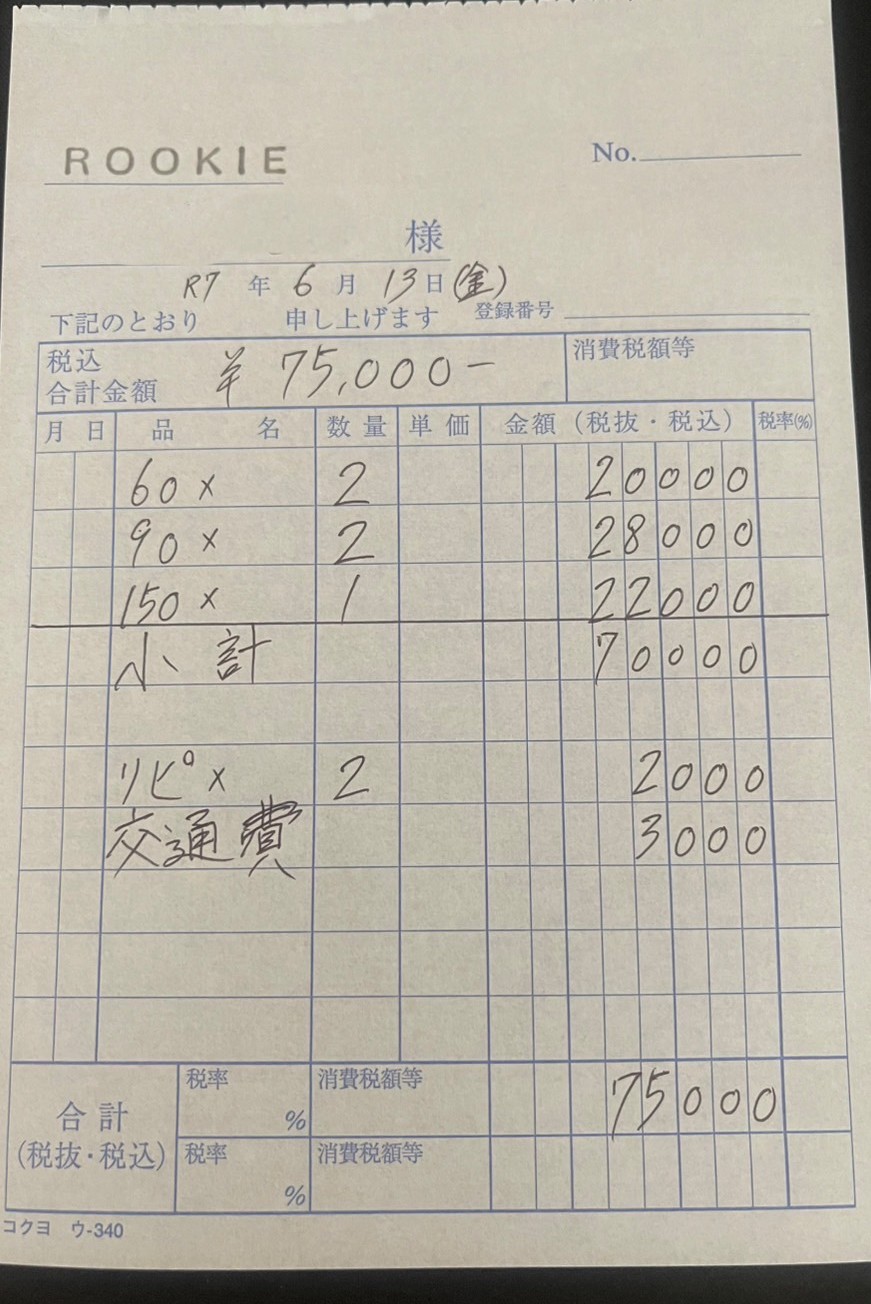 ROOKIE
No.
様
R7 年 6 月 13 日 (金)
下記のとおり 申し上げます 登録番号
税込 合計金額 ¥75,000- 消費税額等
月 日 品 名 数量 単価 金額(税抜・税込) 税率(%)
60 x 2 20000
90 x 2 28000
150 x 1 22000
小計 70000
リピ x 2 2000
交通費 3000
合計 (税抜・税込) 税率 % 消費税額等 75000
税率 % 消費税額等
コクヨ ウ-340